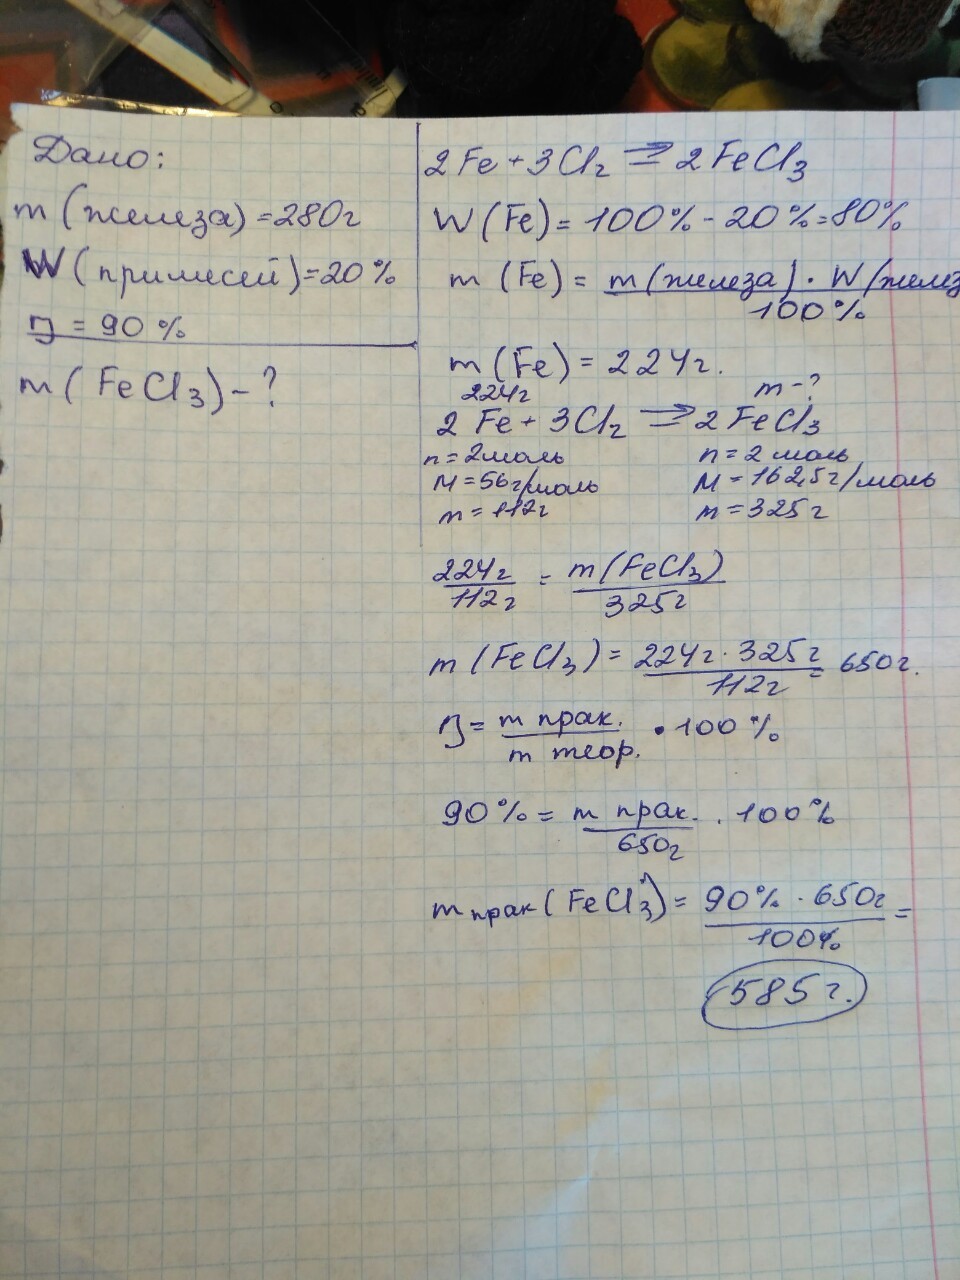 Дано:
m (железа) = 280г
W (примесей) = 20%
η = 90 %
m ( FeCl3) - ?
2 Fe + 3Cl2 ⇒ 2 FeCl3
W (Fe) = 100% - 20% = 80%
m (Fe) = m (железа) · W (желез
100%
m (Fe) = 224г.
224г m - ?
2 Fe + 3Cl2 ⇒ 2 FeCl3
n = 2моль n = 2 моль
M = 56г/моль M = 162,5г/моль
m = 112г m = 325г
224г = m (FeCl3)
112г 325г
m (FeCl3) = 224г · 325г = 650г.
112г
η = m прак. · 100 %
m теор.
90% = m прак. · 100%
650г
m прак (FeCl3) = 90% · 650г =
100%
585г.